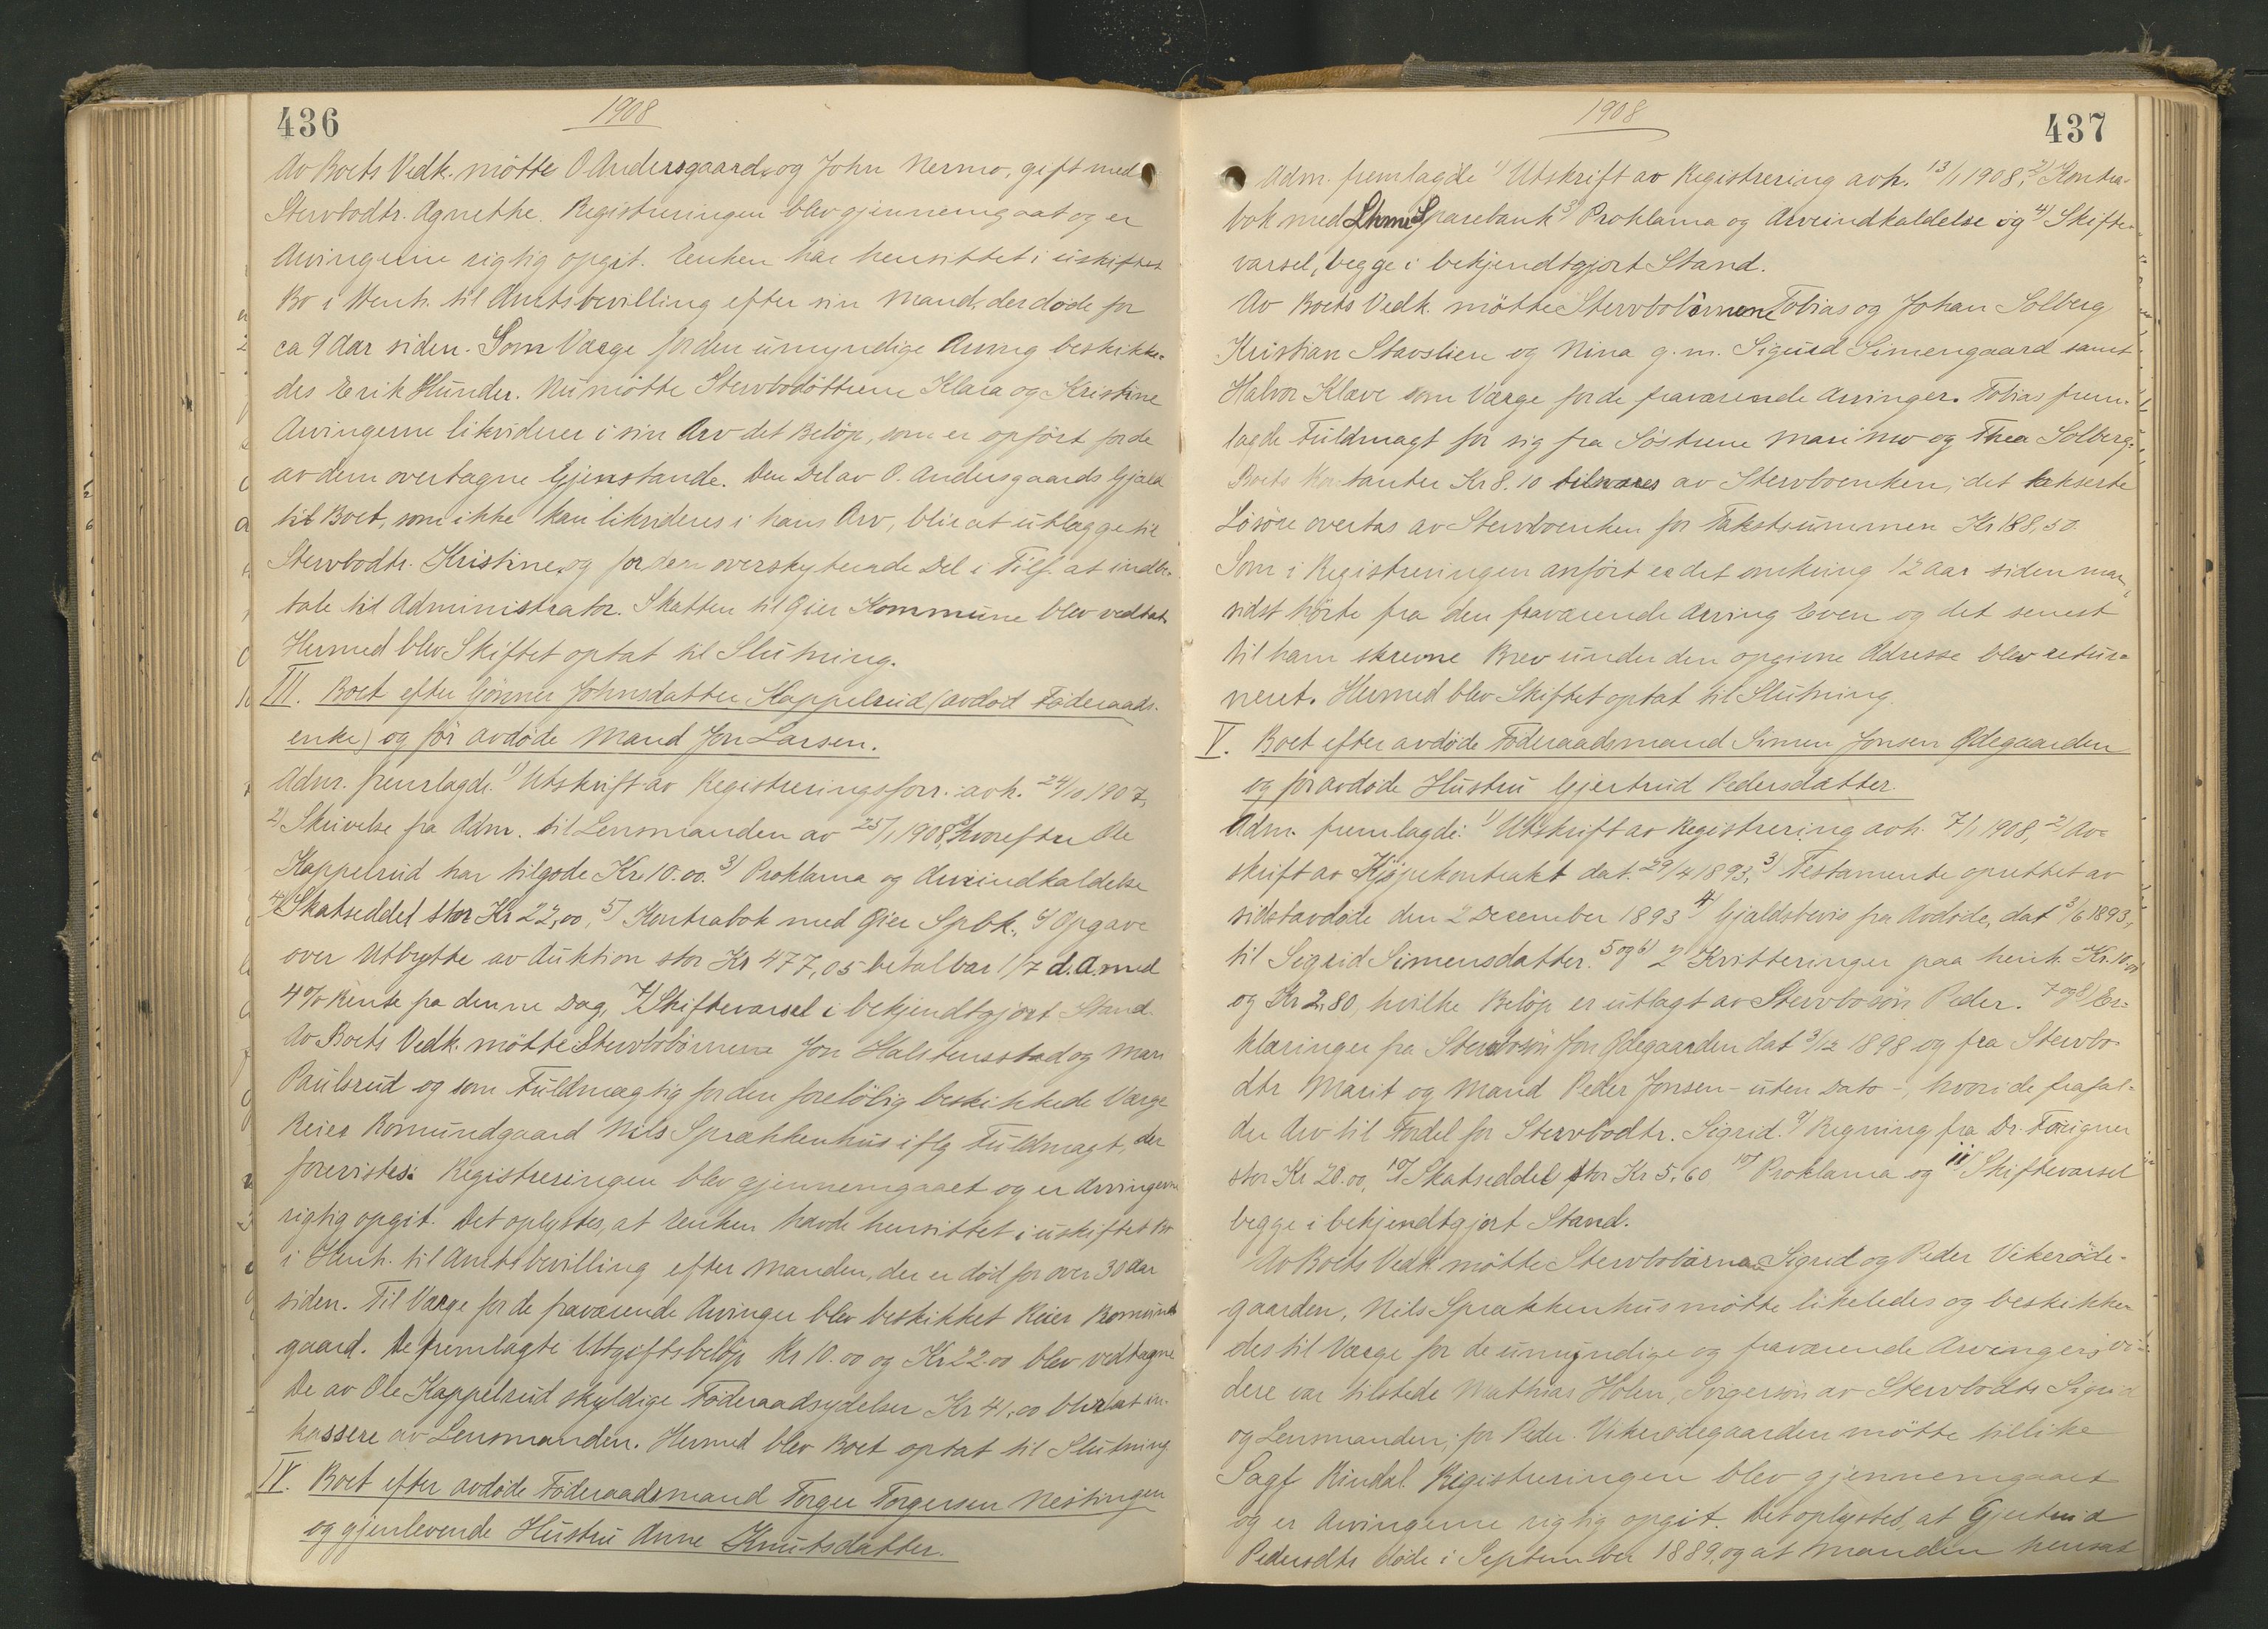 436
1908
Av Boets Vedk. mötte O. Andersgaard og John Nermo, gift med
Stervbodtr. Agnethe. Registreringen blev gjennemgaat og er
Arvingerne rigtig opgit. Enken har hensittet i uskiftet
Bo i Henh. til Amtsbevilling efter sin Mand, der døde for
ca 9 Aar siden. Som Værge for den umyndige Arving beskikke-
des Erik Hunder. Nu mötte Stervbodöttrene Klara og Kristine
Arvingerne likviderer i sin Arv det Beløp, som er opført for de
av dem overtagne Gjenstande. Den Del av O. Andersgaards Gjæld
til Boet, som ikke kan likvideres i hans Arv, blir at utlægge til
Stervbodtr. Kristine, og for den overskytende Del i Tilf. at indbe-
tale til Administrator. Skatten til Øier Kommune blev vedtat
Hermed blev Skiftet optat til Slutning.
III. Boet efter Gönner Johnsdatter Kappelrud (avdöd Föderaads-
enke) og för avdöde Mand Jon Larsen.
Adm. fremlagde: 1) Utskrift av Registreringsforr. avh. 24/10 1907,
2) Skrivelse fra Adm. til Lensmanden av 25/1 1908, hvorefter Ole
Kappelrud har tilgode Kr 10.00. 3) Proklama og Arveindkaldelse
4) Skatseddel stor Kr 22,00, 5) Kontrabok med Øier Spbk., 6) Opgave
over Utbytte av Auktion stor Kr 477,05 betalbar 1/7 d.A. med
4% Rente fra denne Dag, 7) Skiftevarsel i bekjendtgjort Stand.
Av Boets Vedk. mötte Stervbobörnene Jon Halstensstad og Mari
Paulsrud og som Fuldmægtig for den foreløbig beskikkede Værge
Reier Romundgaard Nils Sprækkenhus iflg Fuldmagt, der
forevistes. Registreringen blev gjennemgaaet og er Arvingerne
rigtig opgit. Det oplystes, at Enken havde hensittet i uskiftet Bo
i Henh. til Amtsbevilling efter Manden, der er död for over 30 Aar
siden. Til Værge for de fraværende Arvinger blev beskikket Reier Romund-
gaard. De fremlagte Utgiftsbeløp Kr 10.00 og Kr 22.00 blev vedtagne
De av Ole Kappelrud skyldige Föderaadsydelser Kr 41.00 blir at in-
kassere av Lensmanden. Hermed blev Boet optat til Slutning.
IV. Boet efter avdöde Föderaadsmand Torger Torgersen Nestingen
og gjenlevende Hustru Anne Knutsdatter.
437
1908
Adm. fremlagde 1) Utskrift av Registrering avh. 13/1 1908, 2) Kontra-
bok med Sparebank 3) Proklama og Arveindkaldelse og 4) Skifte-
varsel, begge i bekjendtgjort Stand.
Av Boets Vedk. mötte Stervbobörnene Tobias og Johan Solberg
Kristian Stavslien og Nina g. m. Sigurd Simengaard samt
Halvor Klæve som Værge for de fraværende Arvinger. Tobias frem-
lagde Fuldmagt for sig fra Söstrene Mari Mo og Thea Solberg.
Boets Kontanter Kr 8.10 tilsvares av Stervboenken; det takserte
Lösöre overtas av Stervboenken for Takstsummen Kr 188,50.
Som i Registreringen anfört er det omkring 12 Aar siden man
sidst hörte fra den fraværende Arving Even og det senest
til ham skrevne Brev under den opgivne Adresse blev retur-
neret. Hermed blev Skiftet optat til Slutning.
V. Boet efter avdöde Föderaadsmand Simen Jonsen Ødegaarden
og föravdöde Hustru Gjertrud Pedersdatter.
Adm. fremlagde: 1) Utskrift av Registrering avh. 7/1 1908, 2) Av-
skrift av Kjøpekontrakt dat. 29/4 1893, 3) Testamente oprettet av
sidstavdöde den 2 December 1893 4) Gjældsbevis fra Avdöde, dat 3/6 1893,
til Sigrid Simensdatter. 5 og 6) 2 Kvitteringer paa henh. Kr. 10.00
og Kr 2.80, hvilke Beløp er utlagt av Stervbosön Peder. 7 og 8) Er-
klæringer fra Stervbosön Jon Ødegaarden dat 3/12 1898 og fra Stervbo-
dtr Marit og Mand Peder Jonsen - uten Dato -, hvori de frafal-
der Arv til Fordel for Stervbodtr. Sigrid. 9) Regning fra Dr.
stor Kr 20.00, 10) Skatseddel stor Kr 5.60 10) Proklama og 11) Skiftevarsel
begge i bekjendtgjort Stand.
Av Boets Vedk. mötte Stervbobörnene Sigrid og Peder Vikeröde-
gaarden, Nils Sprækkenhus mötte likeledes og beskikke-
des til Værge for de umyndige og fraværende Arvinger; vi-
dere var tilstede Mathias Holen, Svigersön av Stervbodtr Sigrid
og Lensmanden; for Peder Vikerødegaarden mötte tillike
Sagf Rindal. Registreringen blev gjennemgaaet
og er Arvingerne rigtig opgit. Det oplystes, at Gjertrud
Pedersdtr døde i September 1889, og at Manden hensat